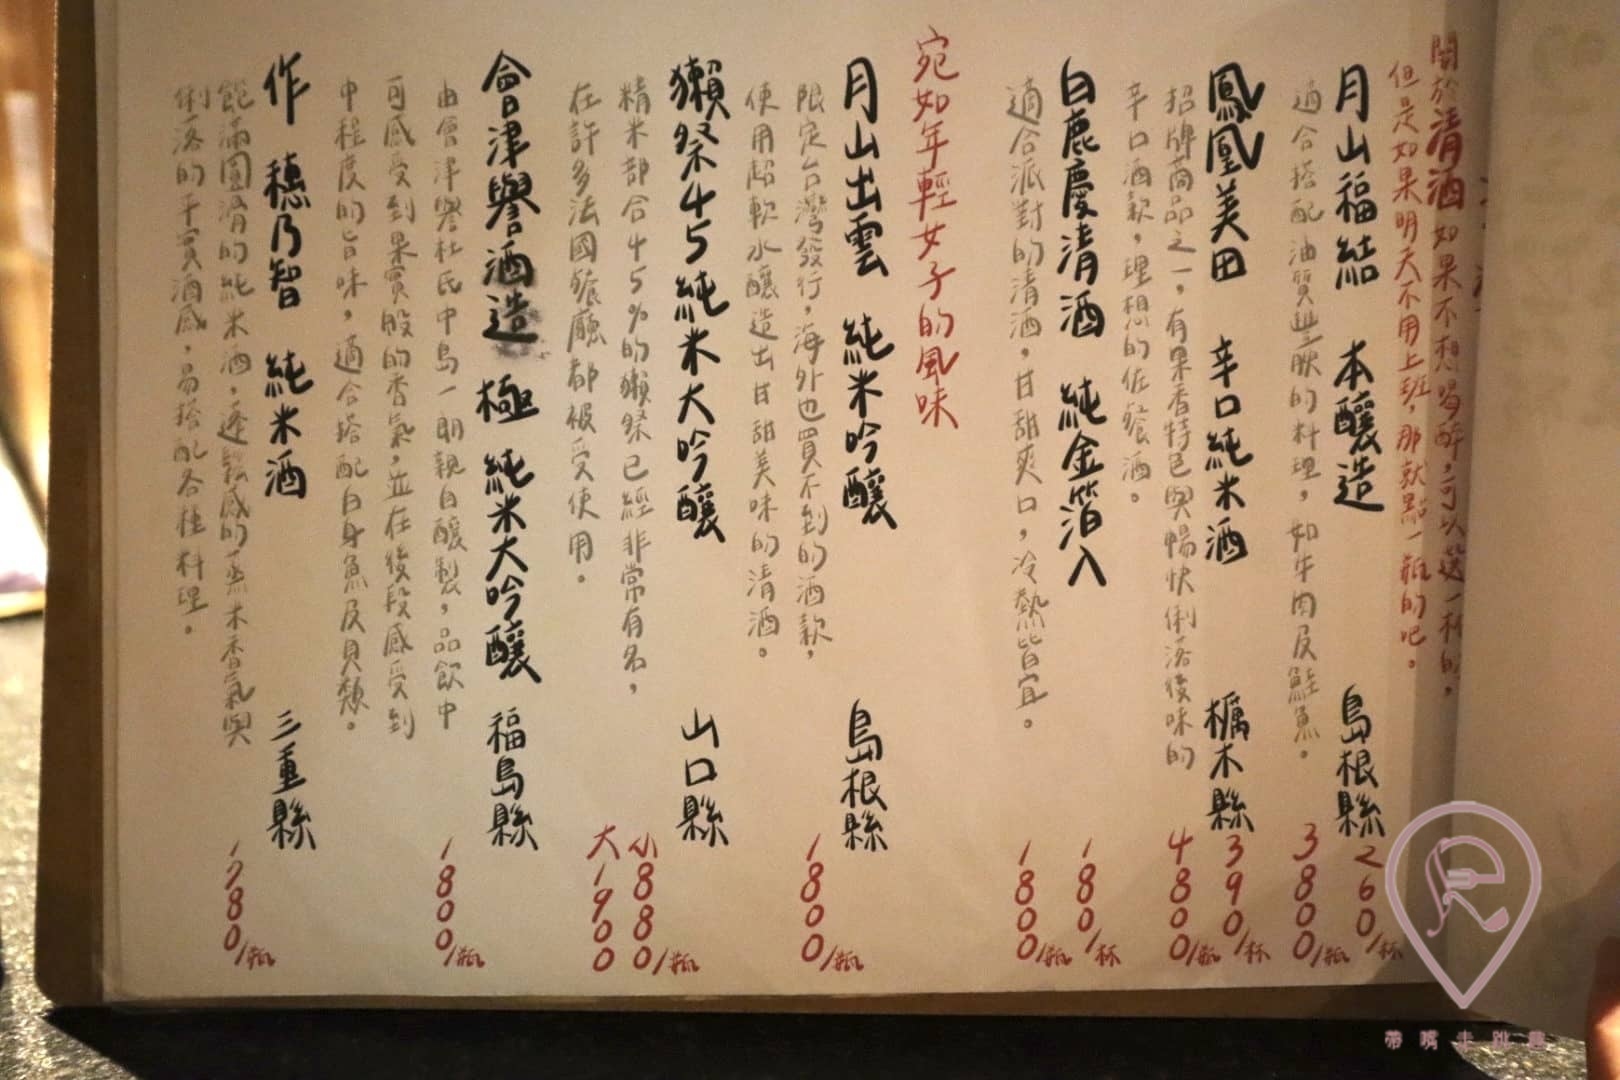 關於清酒如果不想喝醉，可以選一杯的，
但是如果明天不用上班，那就點一瓶的吧。
月山福結 本釀造 島根縣 260/杯
適合搭配油質豐腴的料理，如牛肉及鮭魚。 3800/瓶
鳳凰美田 辛口純米酒 櫔木縣 390/杯
招牌商品之一，有果香特色與暢快俐落後味的 4800/瓶
辛口酒款，理想的佐餐酒。
白鹿慶清酒 純金箔入 180/杯
適合派對的清酒，甘甜爽口，冷熱皆宜。 1800/瓶
宛如年輕女子的風味
月山出雲 純米吟釀 島根縣
限定台灣發行，海外也買不到的酒款， 1800/瓶
使用超軟水釀造出甘甜美味的清酒。
獺祭45純米大吟釀 山口縣
精米部合45%的獺祭已經非常有名， 小880/瓶
在許多法國餐廳都被受使用。 大1900
會津譽酒造 極 純米大吟釀 福島縣
由會津譽杜氏中島一朗親自釀製，品飲中 1800/瓶
可感受到果實般的香氣，並在後段感受到
中程度的旨味，適合搭配白身魚及貝類。
作 穗乃智 純米酒 三重縣
飽滿圓滑的純米酒，蓬鬆感的蒸米香氣與 1780/瓶
俐落的平實酒感，易搭配各種料理。
帶嘴去跳舞